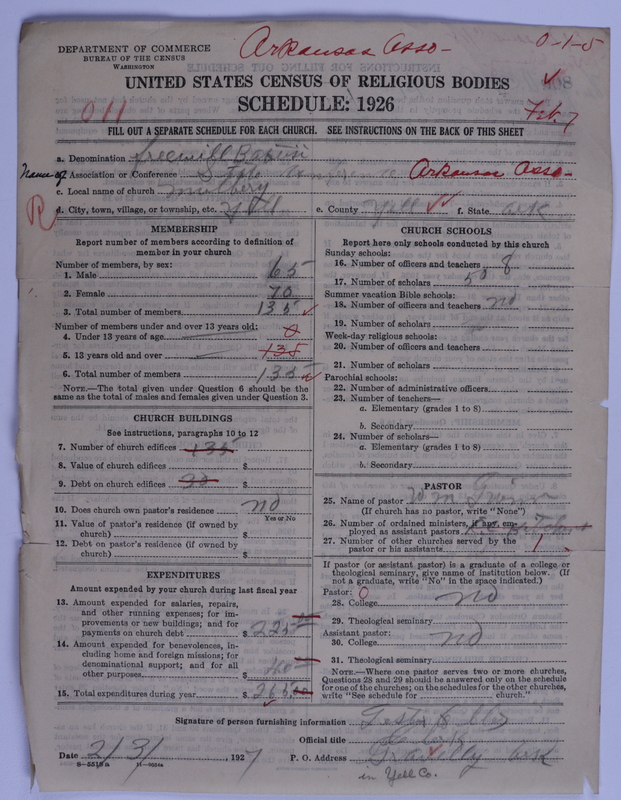 DEPARTMENT OF COMMERCE
BUREAU OF THE CENSUS
WASHINGTON
Arkansas Asso-
0-1-5
UNITED STATES CENSUS OF RELIGIOUS BODIES
SCHEDULE: 1926
011
Feb. 7
FILL OUT A SEPARATE SCHEDULE FOR EACH CHURCH. SEE INSTRUCTIONS ON THE BACK OF THIS SHEET
a. Denomination Freewill Baptist
Name of
b. Association or Conference State Arkansas Asso-
c. Local name of church
R
d. City, town, village, or township, etc. Yell e. County Yell f. State Ark
MEMBERSHIP
Report number of members according to definition of
member in your church
Number of members, by sex:
1. Male 65
2. Female 70
3. Total number of members 135
Number of members under and over 13 years old:
4. Under 13 years of age 0
5. 13 years old and over 135
6. Total number of members 135
NOTE.—The total given under Question 6 should be the
same as the total of males and females given under Question 3.
CHURCH BUILDINGS
See instructions, paragraphs 10 to 12
7. Number of church edifices 135
8. Value of church edifices $
9. Debt on church edifices 30 $
10. Does church own pastor's residence no
Yes or No
11. Value of pastor's residence (if owned by
church) $
12. Debt on pastor's residence (if owned by
church) $
EXPENDITURES
Amount expended by church during last fiscal year
13. Amount expended for salaries, repairs,
and other running expenses; for im-
provements or new buildings; and for
payments on church debt $ 225
14. Amount expended for benevolences, in-
cluding home and foreign missions; for
denominational support; and for all
other purposes $
15. Total expenditures during year $ 265.00
CHURCH SCHOOLS
Report here only schools conducted by this church
Sunday schools:
16. Number of officers and teachers 8
17. Number of scholars 50
Summer vacation Bible schools:
18. Number of officers and teachers no
19. Number of scholars
Week-day religious schools:
20. Number of officers and teachers
21. Number of scholars
Parochial schools:
22. Number of administrative officers
23. Number of teachers—
a. Elementary (grades 1 to 8)
b. Secondary
24. Number of scholars—
a. Elementary (grades 1 to 8)
b. Secondary
PASTOR
25. Name of pastor Wm
(If church has no pastor, write "None")
26. Number of ordained ministers, if any, em-
ployed as assistant pastors
27. Number of other churches served by the
pastor or his assistants 1
If pastor (or assistant pastor) is a graduate of a college or
theological seminary, give name of institution below. (If
not a graduate, write "No" in the space indicated.)
Pastor: 0
28. College no
29. Theological seminary
Assistant pastor:
30. College no
31. Theological seminary
NOTE.—Where one pastor serves two or more churches,
Questions 28 and 29 should be answered only on the schedule
for one of the churches; on the schedules for the other churches,
write "See schedule for church."
Signature of person furnishing information
Official title Clerk
Date 2/3/, 1927 P. O. Address Gravelly Ark
8—5519a 11—9024a
in Yell Co.